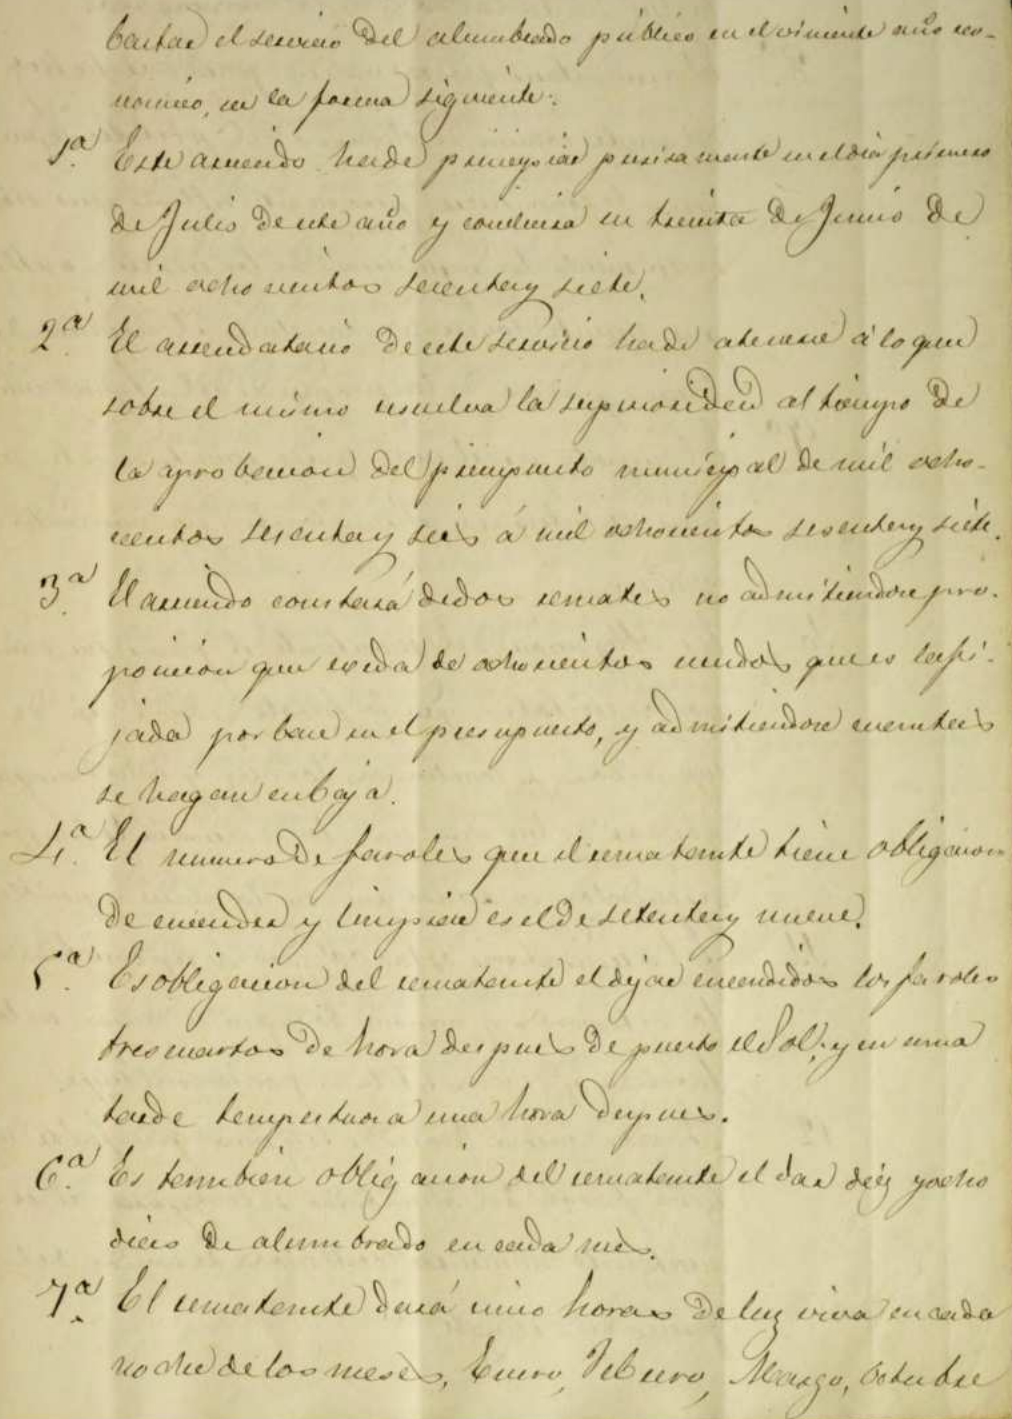 bastar el servicio del alumbrado público en el viniente año eco-
nomico, en la forma siguiente:
1ª. Este arriendo ha de principiar precisamente en el dia primero
de Julio de este año y concluirá en treinta de Junio de
mil ochocientos sesenta y siete.
2ª. El arrendatario de este servicio ha de atenerse á lo que
sobre el mismo resuelva la superioridad al tiempo de
la aprobacion del presupuesto municipal de mil ocho-
cientos sesenta y seis á mil ochocientos sesenta y siete.
3ª. El arriendo constará de dos remates no admitiendose pro-
posicion que esceda de ochocientos escudos que es la fi-
jada por base en el presupuesto, y admitiendose cuantas
se hagan en baja.
4ª. El numero de faroles que el rematante tiene obligacion
de encender y limpiar es el de setenta y nueve.
5ª. Es obligacion del rematante el dejar encendidos los faroles
tres cuartos de hora despues de puesto el Sol; y en una
tarde tempestuosa una hora despues.
6ª. Es tambien obligacion del rematante el dar diez y ocho
dias de alumbrado en cada mes.
7ª. El rematante dará cinco horas de luz viva en cada
noche de los meses, Enero, Febrero, Marzo, Octubre